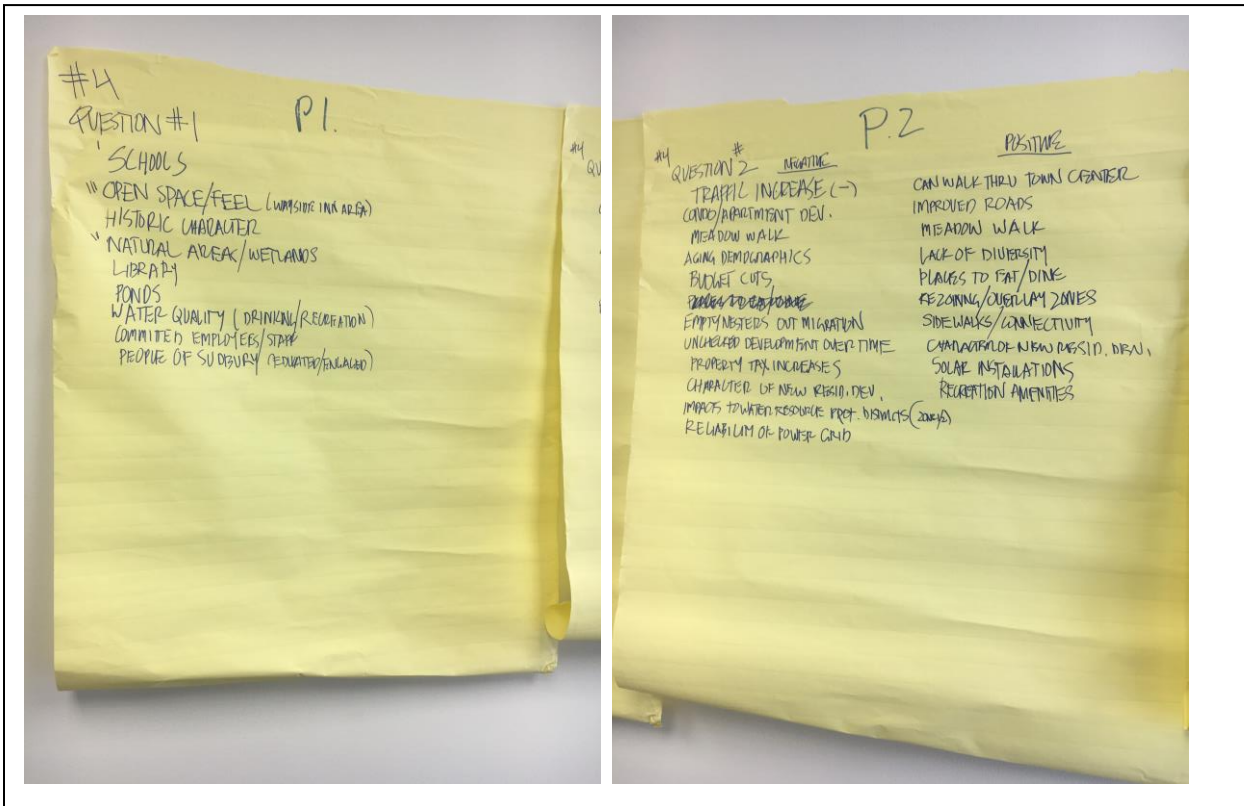 #4
P1.
QUESTION #1
' SCHOOLS
" OPEN SPACE/FEEL (WAYSIDE INN AREA)
HISTORIC CHARACTER
" NATURAL AREAS/WETLANDS
LIBRARY
PONDS
WATER QUALITY (DRINKING/RECREATION)
COMMITTED EMPLOYEES/STAFF
PEOPLE OF SUDBURY (EDUCATED/ENGAGED)
#4
QU
P.2
#4
QUESTION #2
NEGATIVE
TRAFFIC INCREASE (-)
CONDO/APARTMENT DEV.
MEADOW WALK
AGING DEMOGRAPHICS
BUDGET CUTS
PLACES TO EAT/DINE
EMPTY NESTERS OUT MIGRATION
UNCHECKED DEVELOPMENT OVER TIME
PROPERTY TAX INCREASES
CHARACTER OF NEW RESID. DEV.
IMPACTS TO WATER RESOURCE PROT. DISTRICTS (ZONE 2)
RELIABILITY OF POWER GRID
POSITIVE
CAN WALK THRU TOWN CENTER
IMPROVED ROADS
MEADOW WALK
LACK OF DIVERSITY
PLACES TO EAT/DINE
REZONING/OVERLAY ZONES
SIDEWALKS/CONNECTIVITY
CHARACTER OF NEW RESID. DEV.
SOLAR INSTALLATIONS
RECREATION AMENITIES